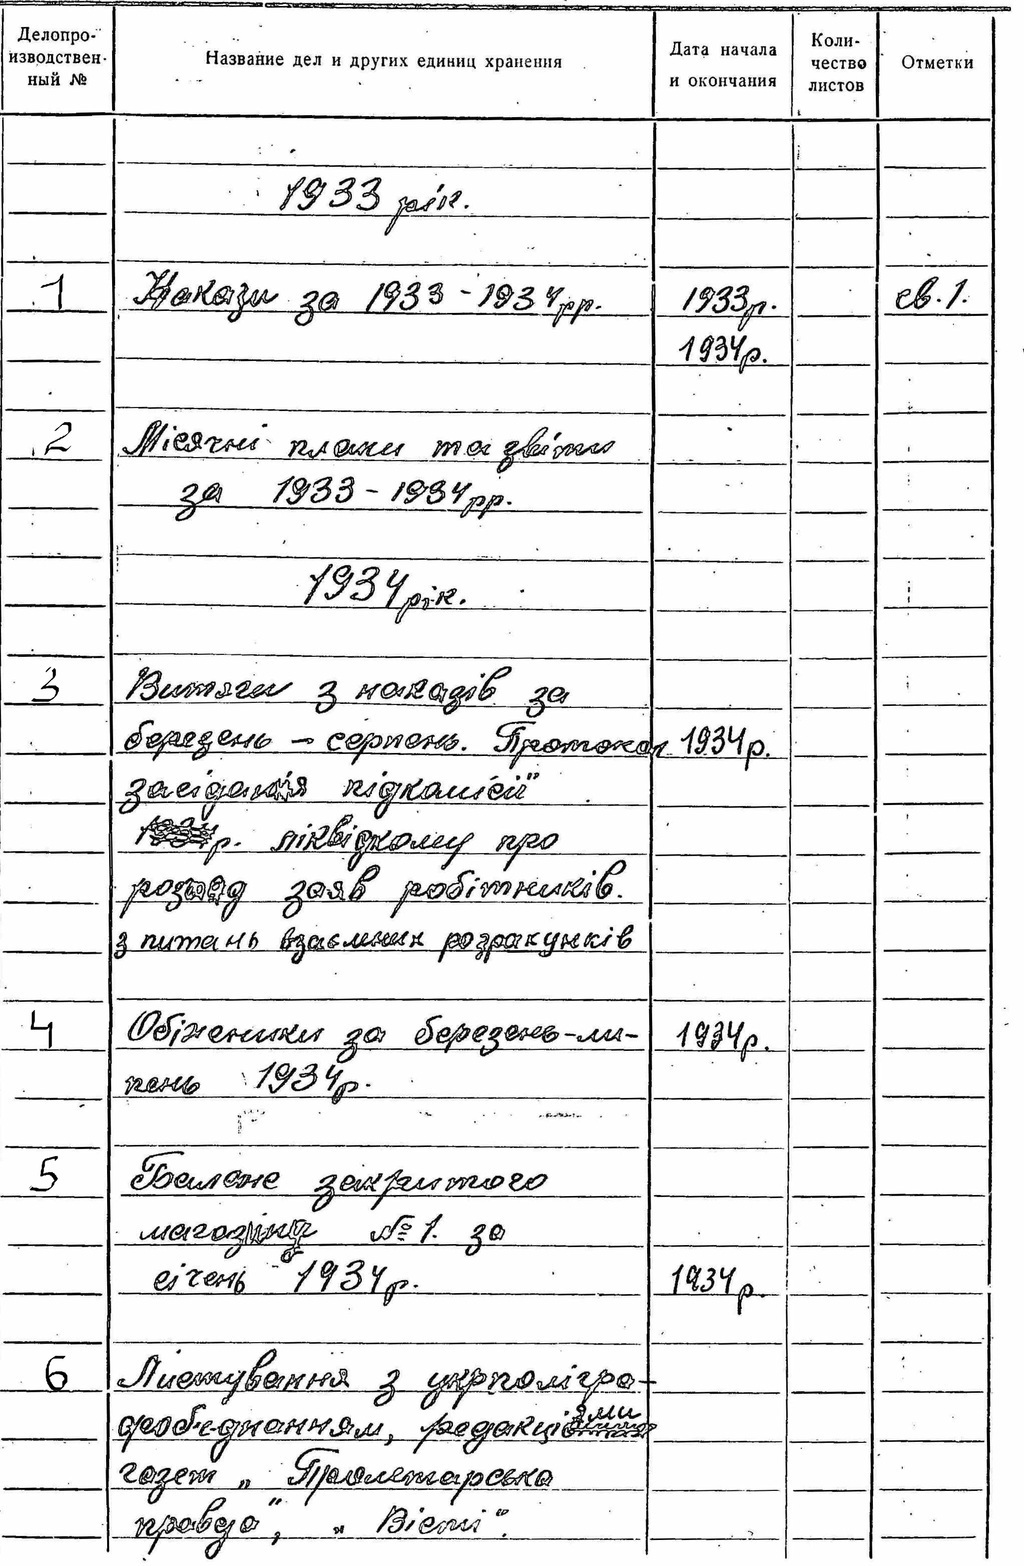 Делопро-
изводствен-
ный №
Название дел и других единиц хранения
Дата начала
и окончания
Коли-
чество
листов
Отметки
1933 рік.
1 Накази за 1933-1934рр. 1933р. св.1.
1934р.
2 Місячні плани та звіти
за 1933-1934рр.
1934рік.
3 Витяги з наказів за
березень – серпень. Протокол 1934р.
засідання підкомісії
р. ліквідкому про
розгляд заяв робітників.
з питань взаємних розрахунків
4 Обіжники за березень-ли- 1934р.
пень 1934р.
5 Баланс закритого
магазіну №1. за
січень 1934р. 1934р.
6 Листування з укрполігра-
фоб'єднанням, редакціями
газет „Пролетарська
правда", „Вісті".